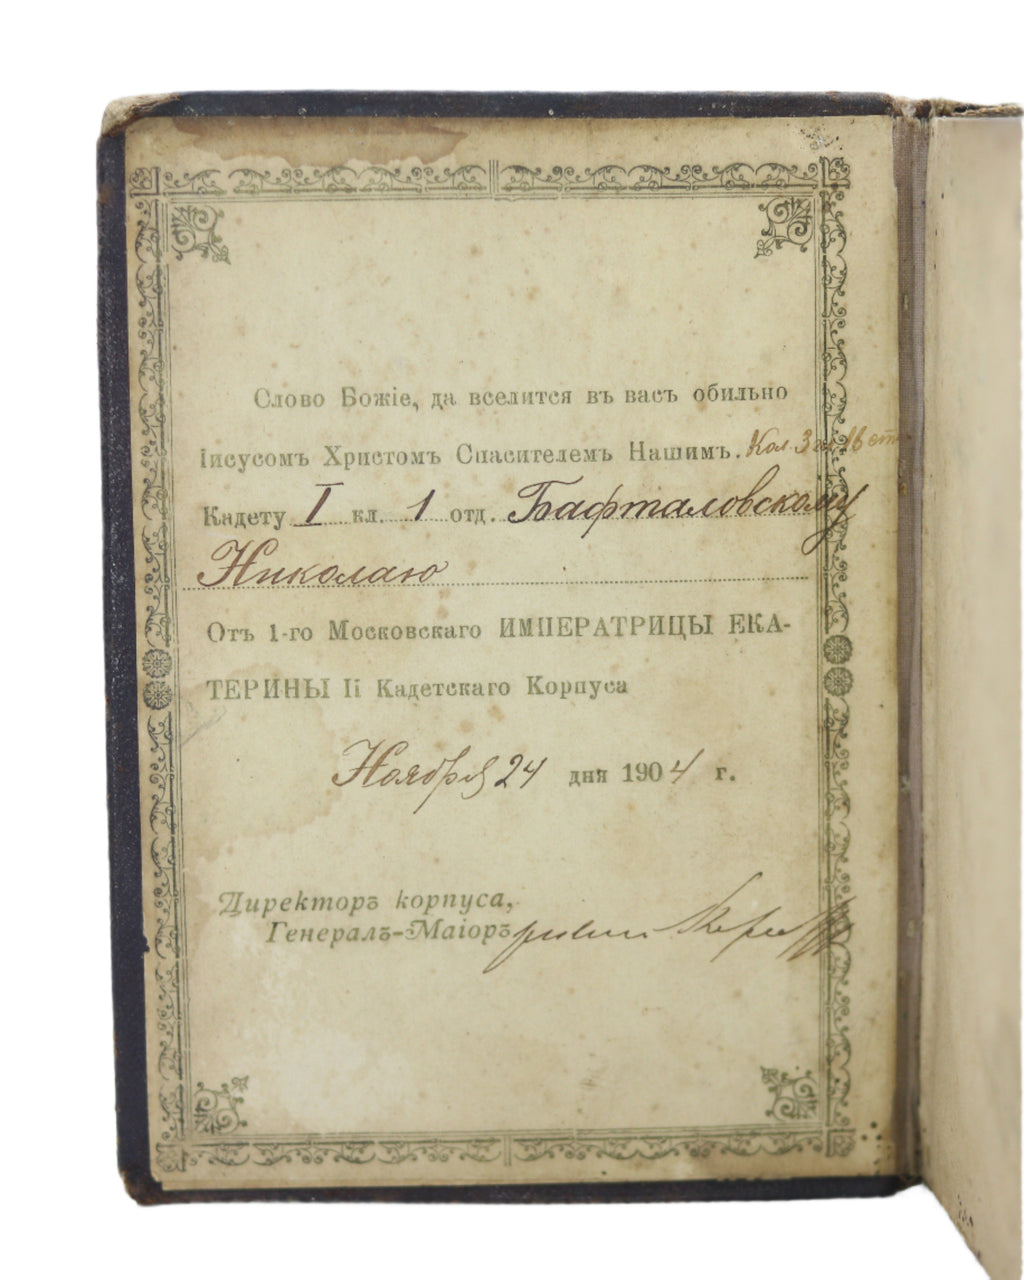 Слово Божіе, да вселится въ васъ обильно
Іисусомъ Христомъ Спасителемъ Нашимъ. Кол. 3 16 ст
Кадету I кл. 1 отд. Бафталовскому
Николаю
Отъ 1-го Московскаго ИМПЕРАТРИЦЫ ЕКА-
ТЕРИНЫ II Кадетскаго Корпуса
Ноября 24 дня 1904 г.
Директоръ корпуса,
Генералъ-Маіоръ